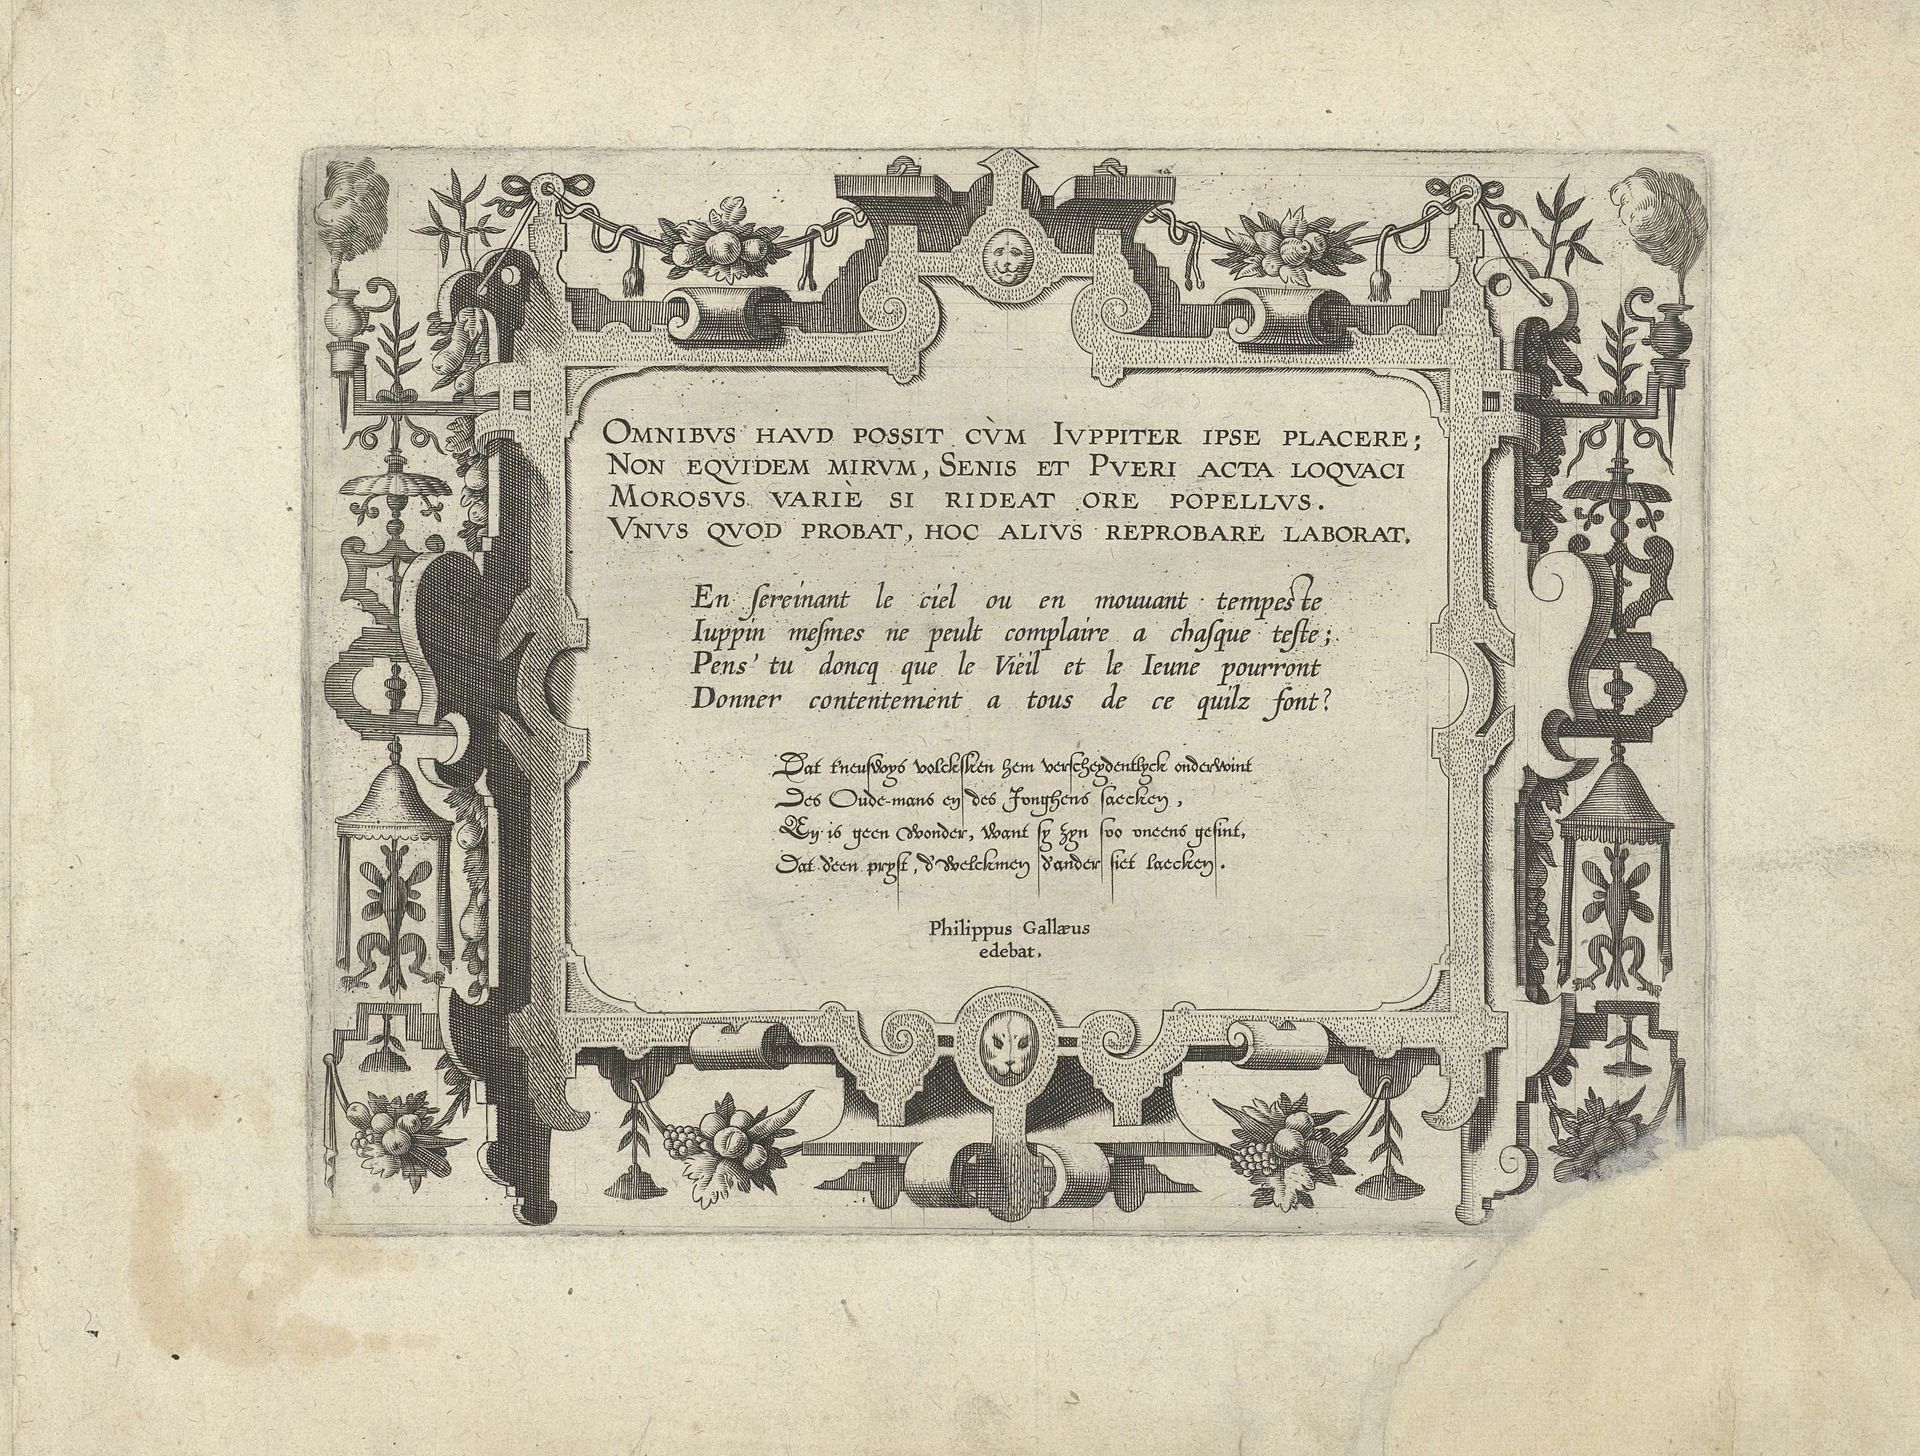 OMNIBVS HAVD POSSIT CV̀M IVPPITER IPSE PLACERE;
NON EQVIDEM MIRVM, SENIS ET PVERI ACTA LOQVACI
MOROSVS VARIÈ SI RIDEAT ORE POPELLVS.
VNVS QVOD PROBAT, HOC ALIVS REPROBARE LABORAT.
En ſereinant le ciel ou en mouuant tempeste
Iuppin meſmes ne peult complaire a chaſque teſte;
Pens' tu doncq que le Vieil et le Ieune pourront
Donner contentement a tous de ce quilz font?
Dat kneuſvoys volcksken hem verſcheydentlyck onderwint
Des Oude-mans en des Jonghens ſaecken,
Ten is geen wonder, want ſy zyn ſvo vneens geſint,
Dat deen pryſt, d'welckmen d'ander ſiet laecken.
Philippus Gallæus
edebat.